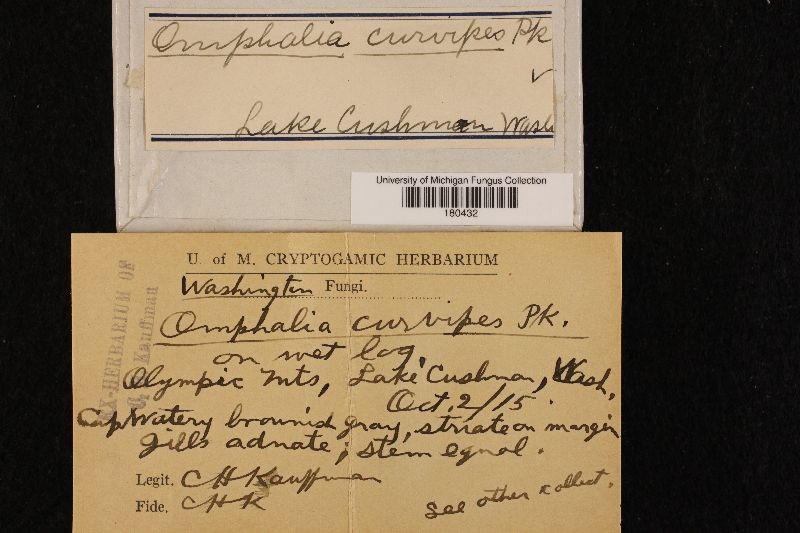 Omphalia curvipes Pk
✓
Lake Cushman Wash
University of Michigan Fungus Collection
180432
U. of M. CRYPTOGAMIC HERBARIUM
Washington Fungi.
EX-HERBARIUM OF
C. Kauffman
Omphalia curvipes Pk.
on wet log,
Olympic Mts, Lake Cushman, Wash.
Oct. 2/15.
Cap watery brownish gray, striate on margin
Gills adnate; stem equal.
Legit. C H Kauffman
Fide. C H K
See other collect.